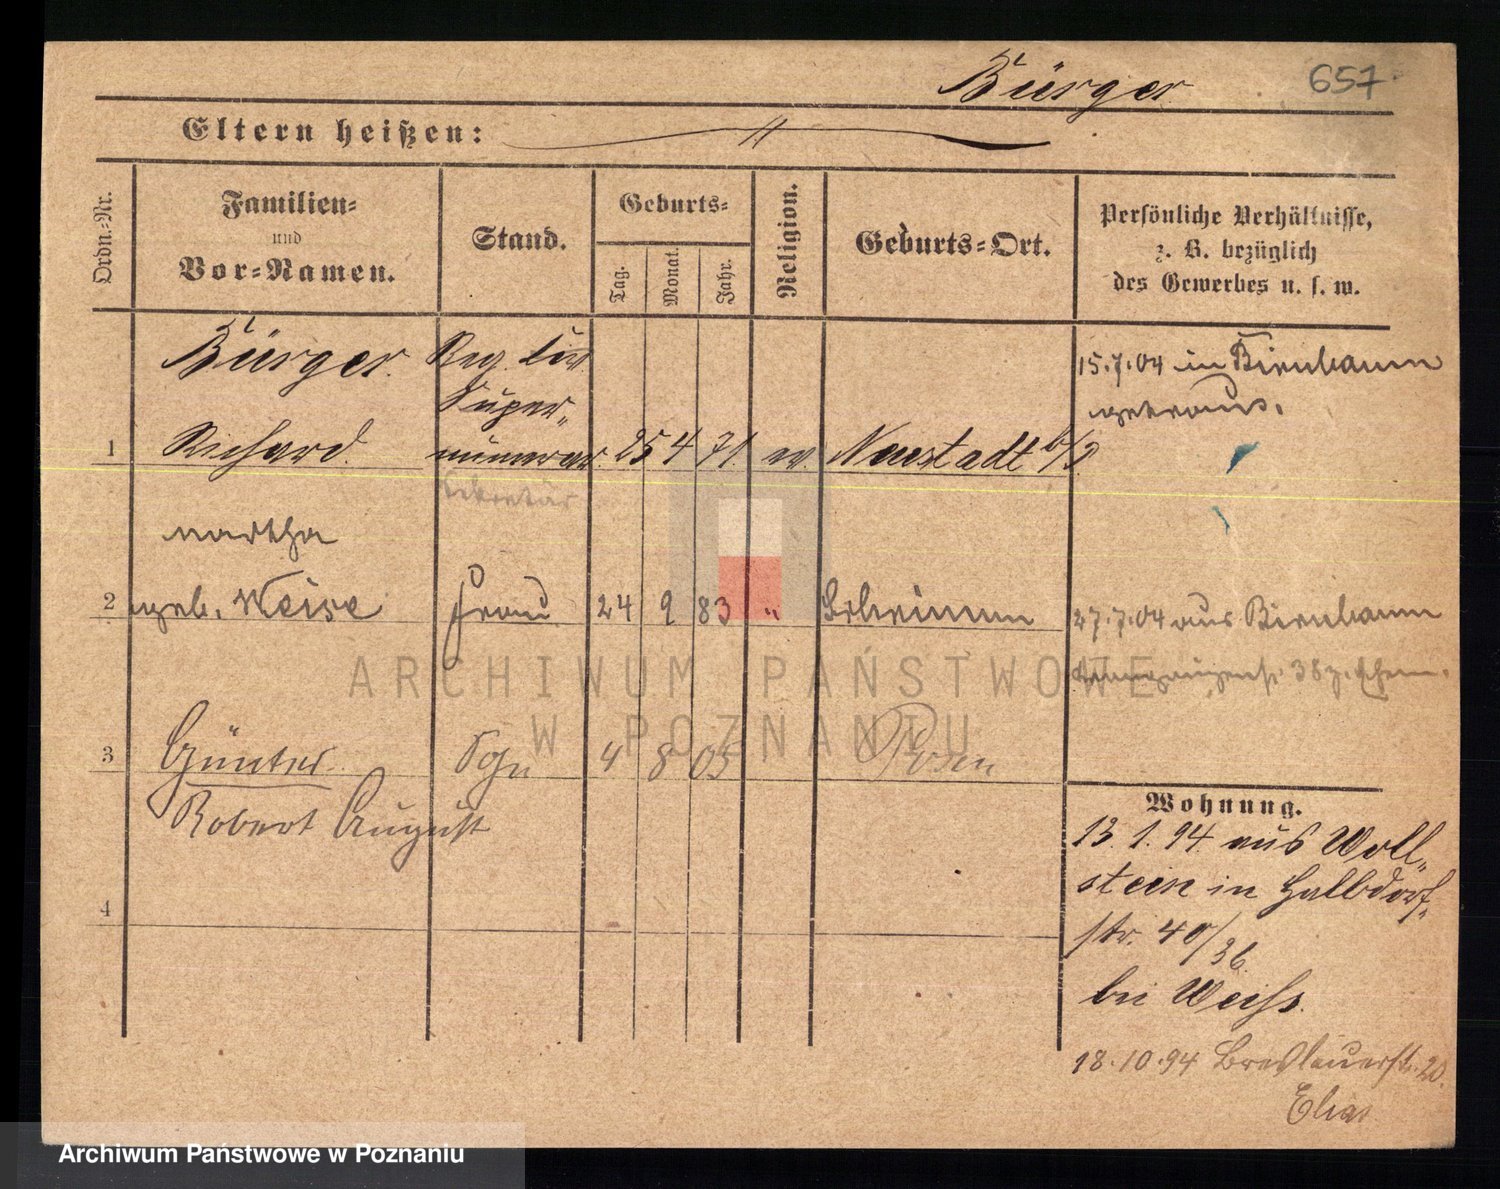 Bürger 657
Eltern heißen:
Ordn.-Nr.
Familien-
und
Vor-Namen.
Stand.
Geburts-
Tag.
Monat.
Jahr.
Religion.
Geburts-Ort.
Persönliche Verhältnisse,
z. B. bezüglich
des Gewerbes u. s. w.
Bürger Reg. Civ. 15.7.04 in Birnbaum
Super- getraut.
1 Richard numerar 25 4 71 ev. Neustadt b/P
Sekretär
Martha
2 geb. Weise Frau 24 9 83 " 27.7.04 aus Birnbaum
ARCHIWUM PAŃSTWOWE
W POZNANIU
3 Günter Sohn 4 8 05 Posen
Robert August
4
Wohnung.
13.1.94 aus Woll-
stein in Halbdorf-
str. 40/36
bei Weiss.
18.10.94 Breslauerstr. 20.
Elias
Archiwum Państwowe w Poznaniu